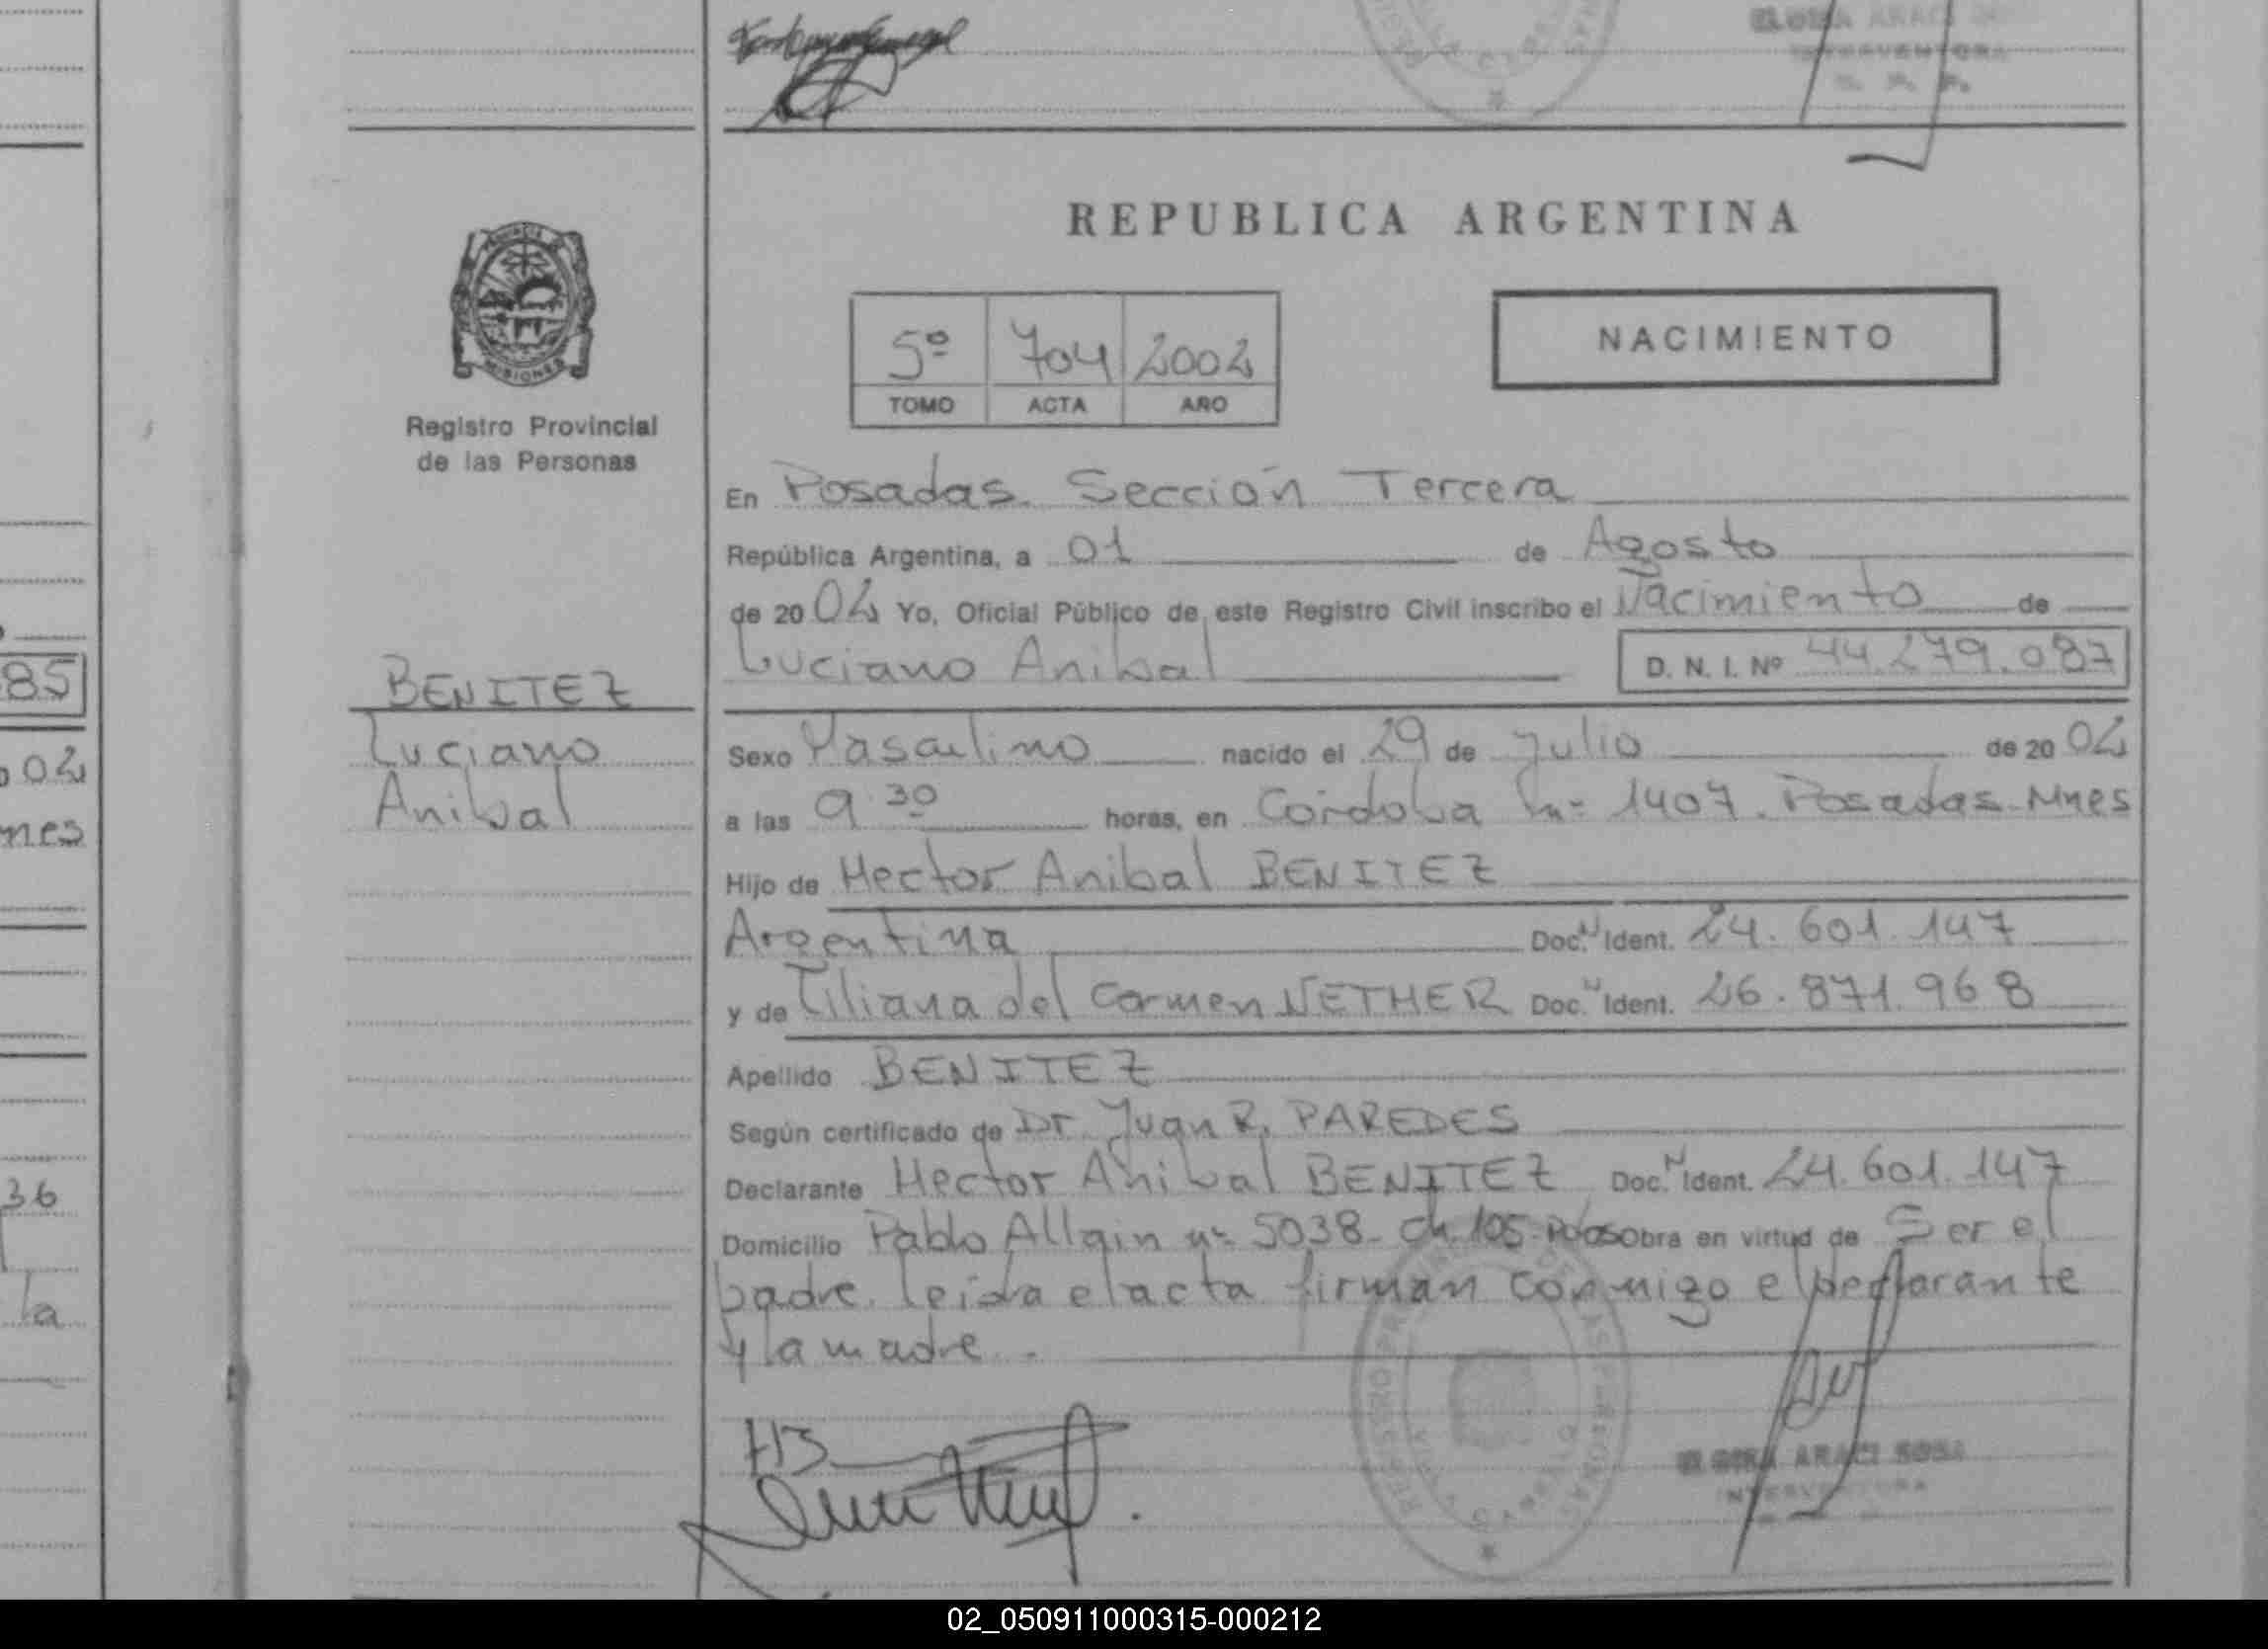 REPUBLICA ARGENTINA
5º 704 2002
TOMO ACTA AÑO
NACIMIENTO
MISIONES
Registro Provincial
de las Personas
BENITEZ
Luciano
Anibal
En Posadas. Sección Tercera
República Argentina, a 01 de Agosto
de 20 02 Yo, Oficial Público de este Registro Civil inscribo el Nacimiento de
Luciano Anibal D. N. I. Nº 44.279.087
Sexo Masculino nacido el 29 de Julio de 20 02
a las 9.30 horas, en Córdoba nº 1407. Posadas-Mnes
Hijo de Hector Anibal BENITEZ
Argentina Doc. N Ident. 24.601.147
y de Liliana del Carmen NETHER Doc. N Ident. 26.871.968
Apellido BENITEZ
Según certificado de Dr. Juan R. PAREDES
Declarante Hector Anibal BENITEZ Doc. N Ident. 24.601.147
Domicilio Pablo Allain nº 5038- ch. 105- Obra en virtud de Ser el
padre. leída el acta firman conmigo el Declarante
y la madre.-
HB
ELOISA ARACI SOSA
INTERVENTORA
85
02
mes
36
la
02_050911000315-000212